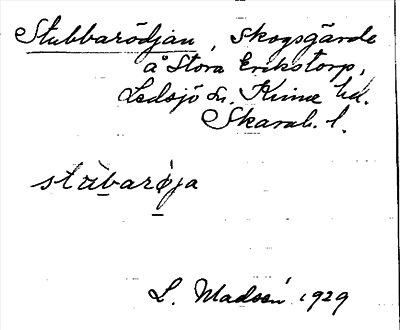 Stubbarödjan, skogsgärde
å Stora Erikstorp,
Ledsjö sn. Kinne hd.
Skarab. l.
L. Madsén 1929